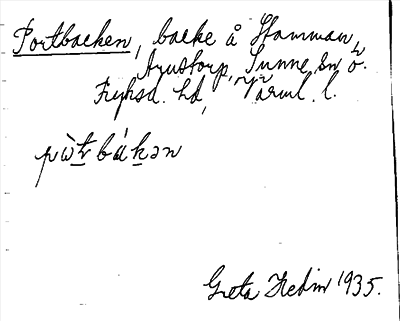 Portbacken, backe å Stamman,
Agustorp, Sunne sn
Fryksd. hd, Värml. l.
pòt̲bákən
Greta Hedin 1935.